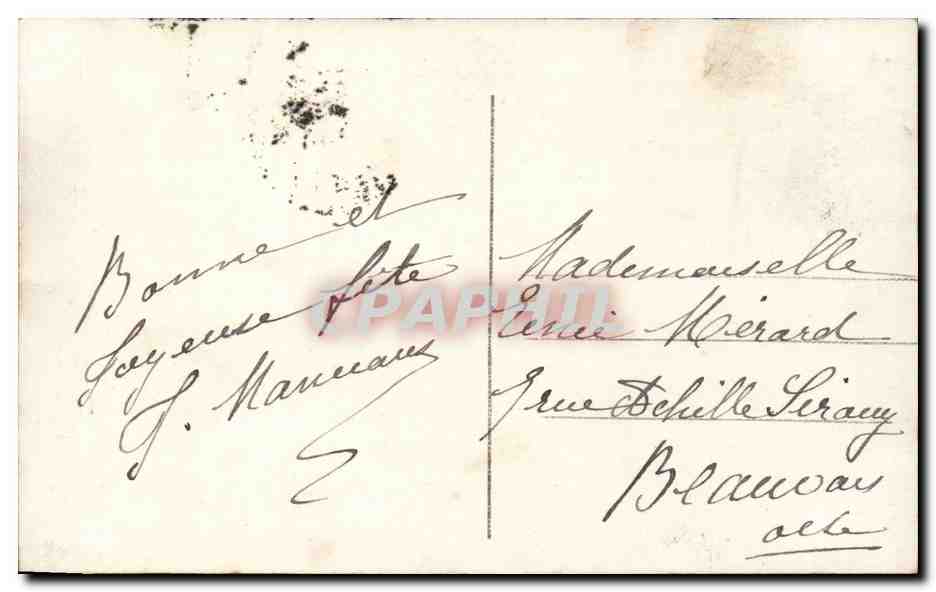 Bonne et
Joyeuse fête
J.
CPAPHIL
Mademoiselle
Mérard
rue Achille Sirouy
Beauvais
Oise